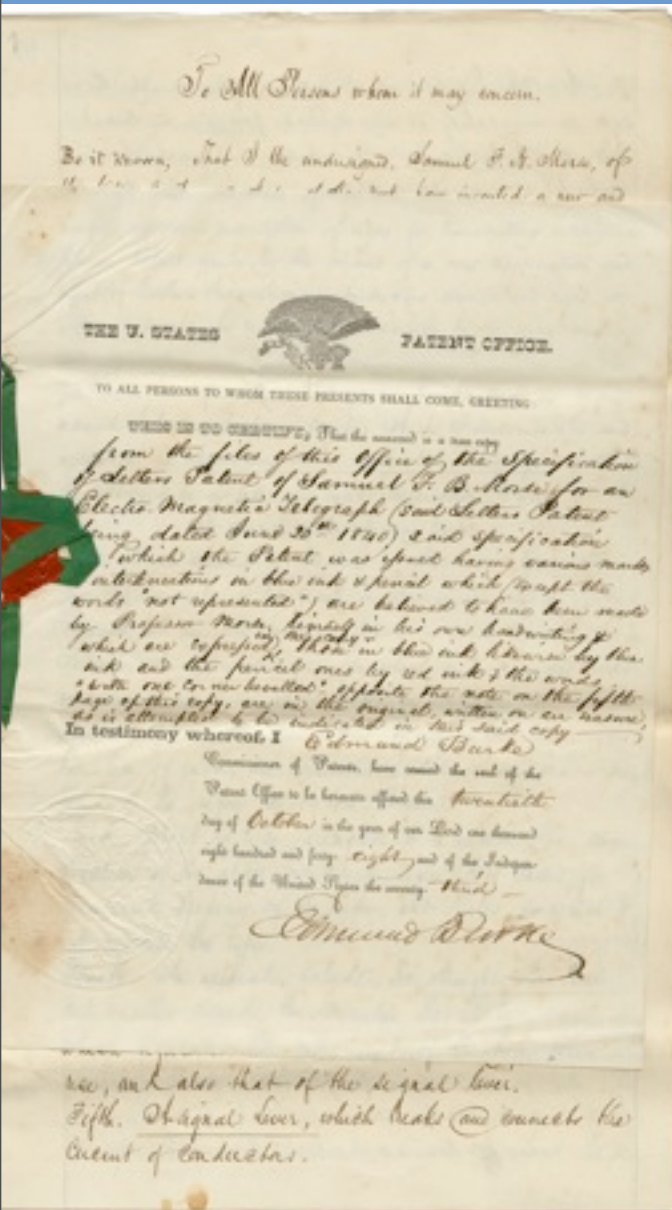 To All Persons whom it may concern.
Be it known, That I the undersigned, Samuel F. B. Morse, of
have invented a new and
THE U. STATES PATENT OFFICE.
TO ALL PERSONS TO WHOM THESE PRESENTS SHALL COME, GREETING:
THIS IS TO CERTIFY, That the annexed is a true copy
from the files of this Office of the Specification
of Letters Patent of Samuel F. B. Morse for an
Electro Magnetic Telegraph (said Letters Patent
being dated June 20th 1840) said specification
which the Patent was issued having various marks
interlineations in blue ink & pencil which (except the
words "not represented") are believed to have been made
by Professor Morse himself in his own handwriting &
which are copied in this copy, those in blue ink likewise by blue
ink and the pencil ones by red ink & the words
"with one corner bevelled" opposite the note on the fifth
page of this copy, are in the original, written on an erasure,
as is attempted to be indicated in this said copy
In testimony whereof, I Edmund Burke
Commissioner of Patents, have caused the seal of the
Patent Office to be hereunto affixed this twentieth
day of October in the year of our Lord one thousand
eight hundred and forty-eight and of the Indepen-
dence of the United States the seventy-third
Edmund Burke
use, and also that of the signal lever.
Fifth. A signal Lever, which breaks and connects the
Circuit of Conductors.